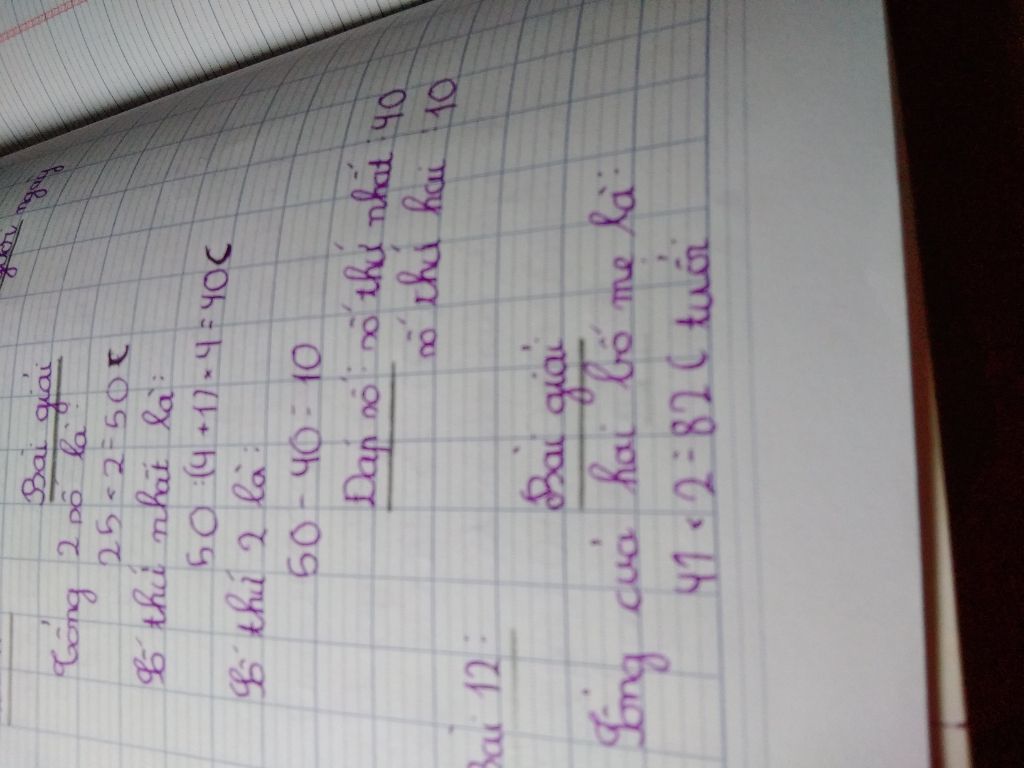 ngay
Bài giải
Tổng 2 số là:
25 × 2 = 50
Số thứ nhất là:
50 : (4 + 1) × 4 = 40
Số thứ 2 là:
50 - 40 = 10
Đáp số: số thứ nhất : 40
số thứ hai : 10
Bài 12:
Bài giải
Tổng của hai bố mẹ là:
41 × 2 = 82 ( tuổi